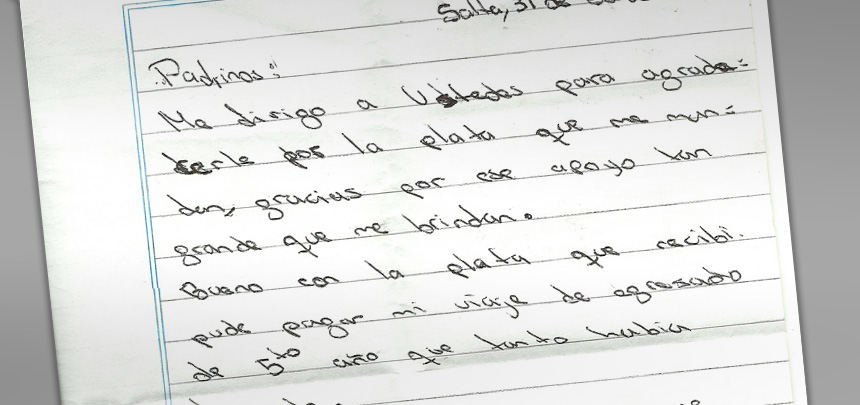 Salta, 31 de
Padrinos:
Me dirijo a Ustedes para agrade=
cerle por la plata que me man=
dan, gracias por ese apoyo tan
grande que me brindan.
Bueno con la plata que recibi.
pude pagar mi viaje de egresado
de 5to año que tanto habia